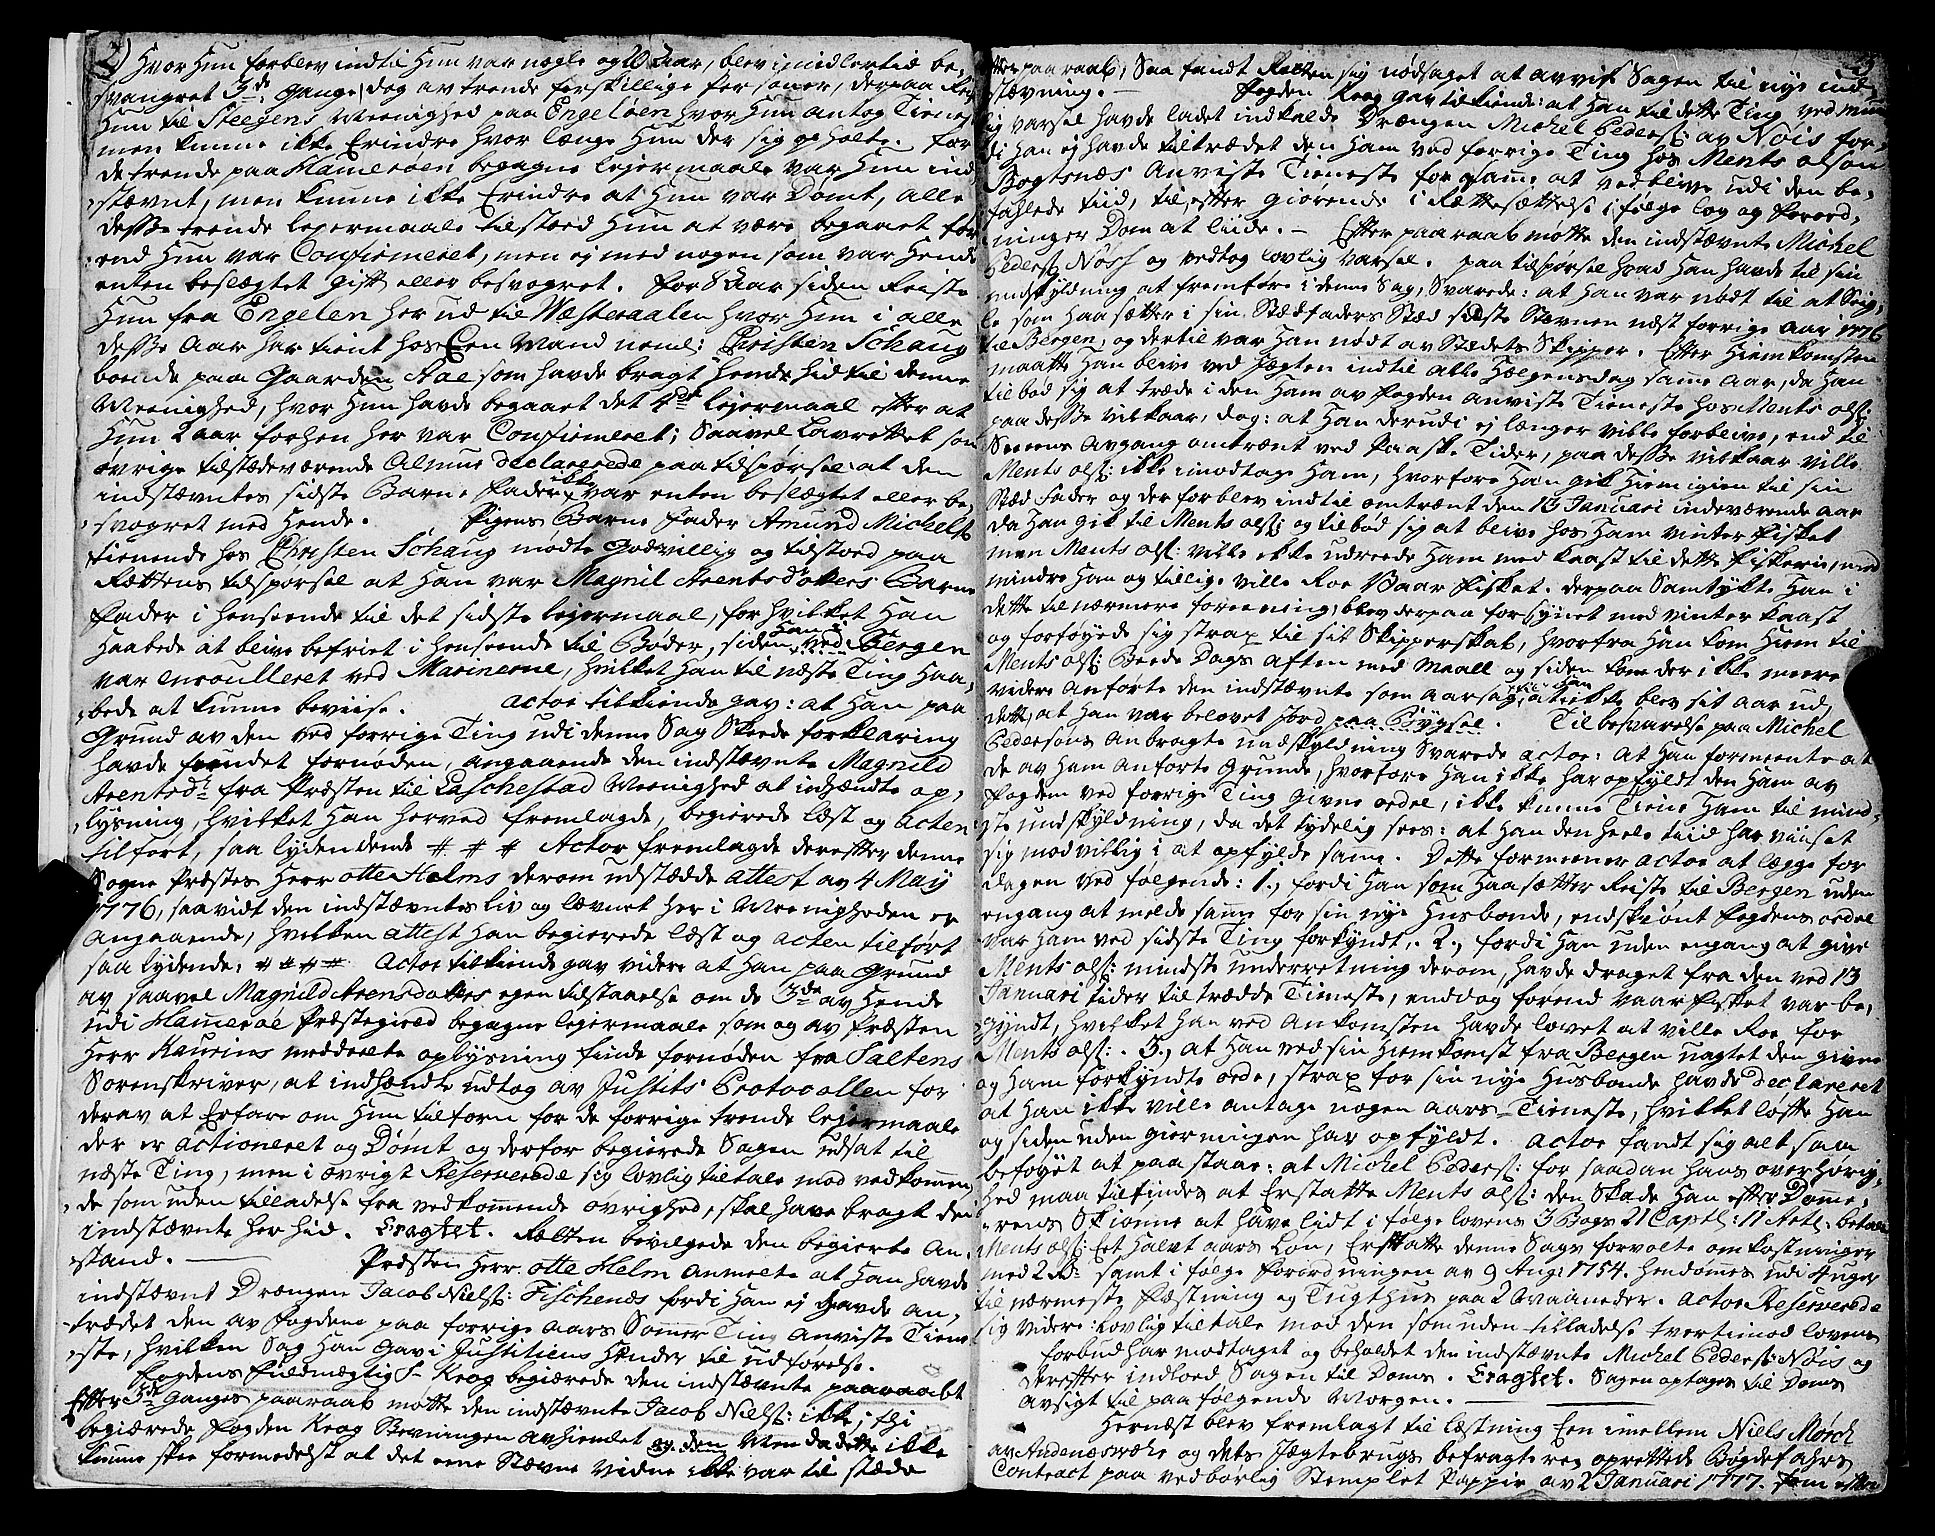 2) Hvor Hun forblev indtil Hun var nogle og 20 Aar, blev imidlertid be-
svangret 3de Gange, dog av trende forskillige Personer, derpaa Reiste
Hun til Steegens Meenighed paa Engeløen hvor Hun antog Tieneste
men kunne ikke Erindre hvor længe Hun der sig opholte. For
de trende paa Hamerøen begagne lejermaale var Hun ind-
stævnt, men kunne ikke Erindre at Hun var Dømt, alle
desse trende lejermaale tilstoed Hun at være begaaet för
end Hun var Confirmeret, men ej med nogen som var Hende
enten beslægtet gift eller besvogret. For 8 Aar siden Reiste
Hun fra Engeløen her ud til Westeraalen hvor Hun i alle
desse Aar har tient hos Een Mand neml: Christen Schaug
boende paa Gaarden Aae som havde bragt Hende hid til denne
Meenighed, hvor Hun havde begaaet det 4de lejermaal efter at
Hun 2 aar forhen her var Confirmeret; Saavel Lavrettet som
øvrige tilstædeværende Almue declarerede paa tilspørsel: at den
indstævntes sidste Barne Fader ikke var enten beslægtet eller be-
svogret med Hende. Pigens Barne Fader Amund Michels:
tienende hos Christen Schaug mødte Godvillig og tilstoed paa
Rættens tilspørsel at Han var Magnil Arentsdatters Barne
Fader i henseende til det sidste lejermaal, for hvilket Han
Haabede at blive befriet i henseende til Bøder, siden Han ved Bergen
var enroulleret ved Marinerne, hvilket Han til næste Ting Haa-
bede at kunne beviise. Actor tilkiende gav: at Han paa
Grund av den ved forrige Ting udi denne Sag Skeede forklaring
havde fundet fornøden, angaaende den indstævnte Magnild
Arentsd: fra Præsten til Laschestad Meenighed at indhændte op-
lysning, hvilket Han herved fremlagde, begierede læst og Acten
tilført, saa lydendende # # # Actor fremlagde derefter denne
Sogne Præstes Herr Otte Helms derom udstædde Attest av 4 May
1776, saavidt den indstævntes liv og levnet her i Meenigheden er
Angaaende, hvilken Attest Han begierede læst og Acten tilført
saa lydende, # # # # Actor tilkiende gav videre at Han paa Grund
av saavel Magnild Arensdatters egen tilstaaelse om de 3de av Hende
udi Hamerøe Præstegield begagne lejermaale som og av Præsten
Herr Kaurins meddeelte oplysning finde fornøden fra Saltens
Sorenskriver, at indhændte udtog av Justits Protocollen for
derav at Erfare om Hun tilforn for de forrige trende lejermaale
der er Actioneret og Dømt og derfor begierede Sagen udsat til
næste Ting, men i øvrigt Reserverede sig lovlig tiltale mod vedkommen-
de som uden tilladelse fra vedkommende øvrighed, skal have bragt den
indstævnte her hid. Eragtet. Rætten bevilgede den begierte An-
stand. Præsten Herr: Otte Helm Anmelte at Han havde
indstævnt Drængen Jacob Niels: Fischenes fordi Han ej Havde an-
trædet den av Fogden paa forrige Aars Sommer Ting Anviste Tiene-
ste, hvilken Sag Han Gav i Justitiens Hænder til udførelse.
Fogdens Fuldmægtig S: Krog begiærede den indstævnte paaraabt
Efter 3de Ganges paaraab møtte den indstævnte Jacob Niels: ikke; thi
begiærede Fogden Krog Stevningen avhiemlet men da dette ikke
kunne skee formedelst at det eene Stævne Vidne ikke var til stæde
Efter paaraab, Saa fandt Retten sig nødsaget at avvise Sagen til nye ind-
stævning. — Fogden Krog gav tilkiende: at Han til dette Ting ved mund-
lig varsel havde ladet indkalde Drængen Michel Peders: av Nøis for-
di Han ej havde tiltrædet den Ham ved forrige Ting hos Ments Olsen
Bogtsnæs Anviste Tieneste for samme at ved blive udi den be-
fahlede tiid, til efter Giørende i Rettesættelse i følge lov og Forord-
ninger Dom at liide. — Efter paaraab møtte den indstævnte Michel
Peders: Nøis og vedtog lovlig varsel. Paa tilspørsel hvad Han havde til sin
undskyldning at fremføre i denne Sag, Svarede: at Han var nødt til at Seig-
le som Haasætter i sin Stædfaders Stæd sidste Stevnen næst forrige aar 1776
til Bergen, og dertil var Han nødt av Stædets Skipper. Efter Hiemkomsten
maatte Han blive ved Jægten indtil Alle Hælgensdag samme Aar, da Han
tilbød sig at træde i den Ham av Fogden anviste Tieneste hos Ments Ols:
paa desse vilkaar, dog: at Han derudi ej længer ville forblive, end til
Sneens Avgang omtrænt ved Paaske Tider, paa desse vilkaar ville
Ments Ols: ikke imodtage Ham, hvorfore Han gik Hiem igien til sin
Stæd Fader og der forblev indtil omtrænt den 13 Januari indeværende aar
da Han gik til Ments Ols: og tilbød sig at blive hos Ham vinter Fisket
men Ments Ols: ville ikke udreede Ham med kaast til dette Fiskerie, med
mindre Han og tillige ville Roe Vaar Fisket. Derpaa Samtykte Han i
dette til nærmere foreening, blev derpaa forsynet med vinter kaast
og forføyede sig strax til sit Skipperskab, hvorfra Han kom Hiem til
Ments Ols: Beede Dags Aften med Maall og siden kom der ikke meere
videre anførte den indstævnte som aarsag til at Han ikke blev sit aar ud,
dette, at Han var belovet Jord paa Bygsel. Til besvarelse paa Michel
Pedersens Anbragte undskyldning Svarede Actor: at Han formeente at
de av Ham Anførte Grunde, hvorfore Han ikke har opfyldt den Ham av
Fogden ved forrige Ting givne ordre, ikke kunne Tiene Ham til mind-
ste undskyldning, da det tydelig sees: at Han den heele tiid har viiset
sig modvillig i at opfylde samme. Dette formeener Actor at legge for
dagen ved følgende: 1., fordi Han som Haasætter Reiste til Bergen uden
engang at melde samme for sin nye Husbonde, endskiønt Fogdens ordre
var Ham ved sidste Ting forkyndt. 2., fordi Han uden engang at give
Ments Ols: mindste underretning derom, havde draget fra den ved 13
Januari tider tiltrædde Tieneste, end dog førend vaar fisket var be-
gyndt, hvilket Han ved Ankomsten havde lovet at ville Roe for
Ments Ols:. 3., at Han ved sin Hiemkomst fra Bergen uagtet den givne
og Ham forkyndte ordre, strax for sin nye Husbonde havde declareret
at Han ikke ville antage nogen aars Tieneste, hvilket løfte Han
og siden uden gierningen har opfyldt. Actor fandt sig alt saa
beføyet at paa staae: at Michel Peders: for saadan hans overhørig-
Hed maa tilfindes at Erstatte Ments Ols: den Skade Han efter Dome-
rens Skiønne at have lidt i følge lovens 3 Bogs 21 Captl: 11 Artl. betale
Ments Ols: Eet Halvt aars Løn, Erstatte denne Sags forvolte omkostninger
med 2 Rd: samt i følge Forordningen av 9 Aug: 1754. hendømmes udi Auger
til nærmeste Fæstning og Tugthus paa 2 Maaneder. Actor Reserverede
sig videre lovlig tiltale mod den som uden tilladelse tvertimod lovens
forbud har modtaget og beholdt den indstævnte Michel Peders: Nøis og
derefter indloed Sagen til Doms. Eragtet. Sagen optages til Doms
Avsigt til paa følgende Morgen. —
Hernæst blev fremlagt til læsning Een imellem Niels Mørch
av Andenæswahr og dets Jægtebrugs befragtere oprettede Bøgdefahrs
Contract paa vedbørlig Stemplet Pappir av 2 Januari 1777. som efter